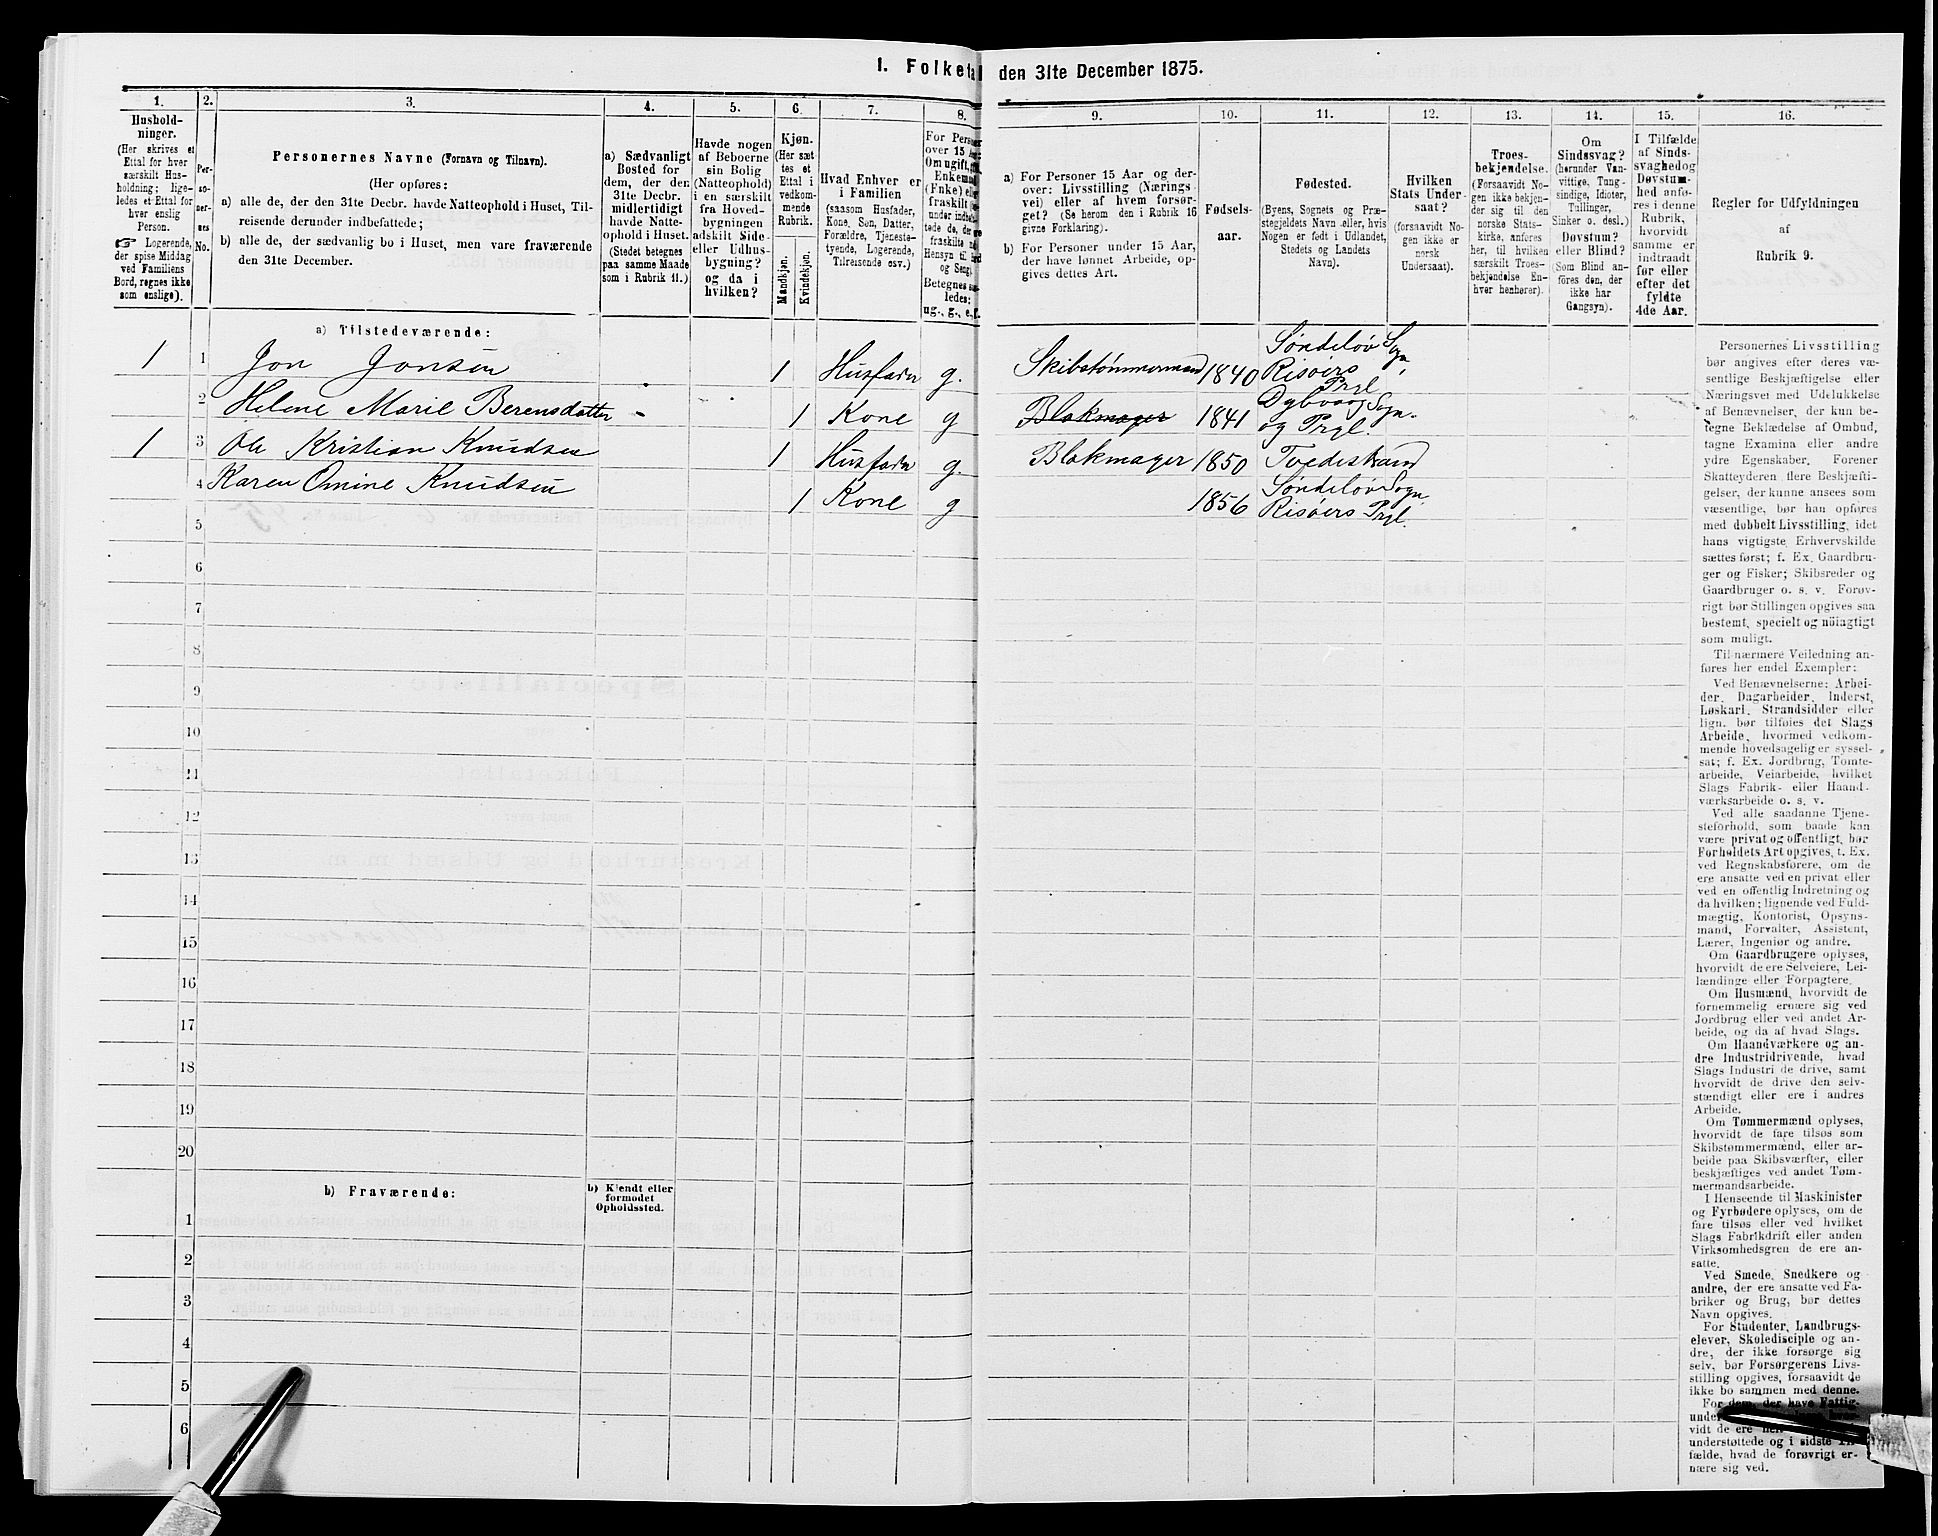 I. Folketal den 31te December 1875.
1. 2. 3. 4. 5. 6. 7. 8. 9. 10. 11. 12. 13. 14. 15. 16.
Hushold-
ninger.
(Her skrives et
Ettal for hver
særskilt Hus-
holdning; lige-
ledes et Ettal for
hver enslig
Person.
☞ Logerende,
der spise Middag
ved Familiens
Bord, regnes ikke
som enslige).
Per-
so-
ner-
nes
No.
Personernes Navne (Fornavn og Tilnavn).
(Her opføres:
a) alle de, der den 31te Decbr. havde Natteophold i Huset, Til-
reisende derunder indbefattede;
b) alle de, der sædvanlig bo i Huset, men vare fraværende
den 31te December.
a) Sædvanligt
Bosted for
dem, der den
31te Decbr.
midlertidigt
havde Natte-
ophold i Huset.
(Stedet betegnes
paa samme Maade
som i Rubrik 11.)
Havde nogen
af Beboerne
sin Bolig
(Natteophold)
i en særskilt
fra Hoved-
bygningen
adskilt Side-
eller Udhus-
bygning?
og da i
hvilken?
Kjøn.
(Her sæt-
tes et
Ettal i
vedkom-
mende
Rubrik.
Mandkjøn.
Kvindekjøn.
Hvad Enhver er
i Familien
(saasom Husfader,
Kone, Søn, Datter,
Forældre, Tjeneste-
tyende, Logerende,
Tilreisende osv.)
For Personer
over 15 Aar:
Om ugift, gift,
Enkemand
(Enke) eller
fraskilt
Betegnes saa-
ledes:
ug., g., e., f.
a) For Personer 15 Aar og der-
over: Livsstilling (Nærings-
vei) eller af hvem forsør-
get? (Se herom den i Rubrik 16
givne Forklaring).
b) For Personer under 15 Aar,
der have lønnet Arbeide, op-
gives dettes Art.
Fødsels-
aar.
Fødested.
(Byens, Sognets og Præ-
stegjeldets Navn eller, hvis
Nogen er født i Udlandet,
Stedets og Landets
Navn).
Hvilken
Stats Under-
saat?
(forsaavidt No-
gen ikke er
norsk
Undersaat).
Troes-
bekjendelse.
(Forsaavidt No-
gen ikke bekjen-
der sig til den
norske Stats-
kirke, anføres
her, til hvilken
særskilt Troes-
bekjendelse En-
hver henhører).
Om
Sindssvag?
(herunder Van-
vittige, Tung-
sindige, Idioter,
Tullinger,
Sinker o. desl.)
Døvstum?
eller Blind?
(Som Blind an-
føres den, der
ikke har
Gangsyn).
I Tilfælde
af Sinds-
svaghed og
Døvstum-
hed anfø-
res i denne
Rubrik,
hvorvidt
samme er
indtraadt
før eller
efter det
fyldte
4de Aar.
Regler for Udfyldningen
af
Rubrik 9.
a) Tilstedeværende:
1 1 Jon Jonsen 1 Husfader g. Skibstømmermand 1840 Søndeløv Sogn, Risøers Prgl
2 Helene Marie Berensdatter - 1 Kone g Blokmager 1841 Dybvaag Sogn og Prgl.
1 3 Ole Kristian Knudsen 1 Husfader g. Blokmager 1850 Tvedestrand
4 Karen Omine Knudsen 1 Kone g 1856 Søndeløv Sogn Risøers Prgl.
5
6
7
8
9
10
11
12
13
14
15
16
17
18
19
20
b) Fraværende:
b) Kjendt eller
formodet
Opholdssted.
1
2
3
4
5
6
Personernes Livsstilling
bør angives efter deres væ-
sentlige Beskjæftigelse eller
Næringsvei med Udelukkelse
af Benævnelser, der kun be-
tegne Beklædelse af Ombud,
tagne Examina eller andre
ydre Egenskaber. Forener
Skatteyderen flere Beskjæfti-
gelser, der kunne ansees som
væsentlige, bør han opføres
med dobbelt Livsstilling, idet
hans vigtigste Erhvervskilde
sættes først; f. Ex. Gaardbru-
ger og Fisker; Skibsreder og
Gaardbruger o. s. v. Forøv-
rigt bør Stillingen opgives saa
bestemt, specielt og nöiagtigt
som muligt.
Til nærmere Veiledning an-
føres her endel Exempler:
Ved Benævnelserne: Arbei-
der, Dagarbeider, Inderst,
Løskarl, Strandsidder eller
lign. bør tilføies det Slags
Arbeide, hvormed vedkom-
mende hovedsagelig er syssel-
sat; f. Ex. Jordbrug, Tomte-
arbeide, Veiarbeide, hvilket
Slags Fabrik- eller Haand-
værksarbeide o. s. v.
Ved alle saadanne Tjene-
steforhold, som baade kan
være privat og offentligt, bør
Forholdets Art opgives, f. Ex.
ved Regnskabsførere, om de
ere ansatte ved en privat eller
ved en offentlig Indretning og
da hvilken; lignende ved Fuld-
mægtig, Kontorist, Opsyns-
mand, Forvalter, Assistent,
Lærer, Ingeniør og andre.
Om Gaardbrugere oplyses,
hvorvidt de ere Selveiere, Lei-
lændinge eller Forpagtere.
Om Husmænd, hvorvidt de
fornemmelig ernære sig ved
Jordbrug eller ved andet Ar-
beide, og da af hvad Slags.
Om Haandværkere og an-
dre Industridrivende, hvad
Slags Industri de drive, samt
hvorvidt de drive den selv-
stændigt eller ere i andres
Arbeide.
Om Tømmermænd oplyses,
hvorvidt de fare tilsøs som
Skibstømmermænd, eller ar-
beide paa Skibsværfter, eller
beskjæftiges ved andet Tøm-
mermandsarbeide.
I Henseende til Maskinister
og Fyrbødere oplyses, om de
fare tilsøs eller ved hvilket
Slags Fabrikdrift eller anden
Virksomhedsgren de ere an-
satte.
Ved Smede, Snedkere og
andre, der ere ansatte ved Fa-
briker og Brug, bør dettes
Navn opgives.
For Studenter, Landbrugs-
elever, Skoledisciple og an-
dre, der ikke forsørge sig
selv, bør Forsørgerens Livs-
stilling opgives, forsaavidt de
ikke bo sammen med denne.
For dem, der have Fattig-
vidt de ere
understøttede og i sidste Til-
fælde, hvad de forøvrigt er-
nære sig ved.